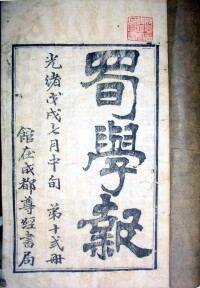 蜀學報
光緒戊戌七月中旬 第十弐冊
館在成都尊經書局